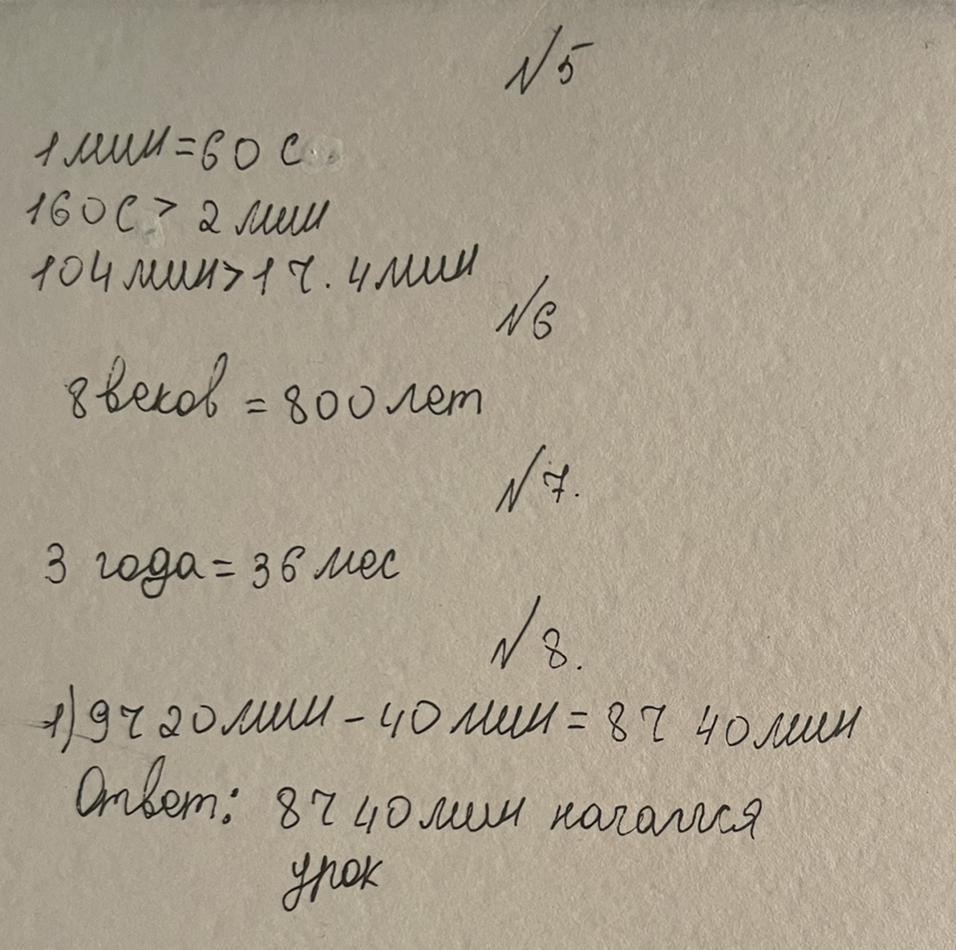 №5
1 мин = 60 с
160 с > 2 мин
104 мин > 1 ч. 4 мин
№6
8 веков = 800 лет
№7.
3 года = 36 мес
№8.
1) 9ч 20 мин - 40 мин = 8ч 40 мин
Ответ: 8ч 40 мин начался
урок